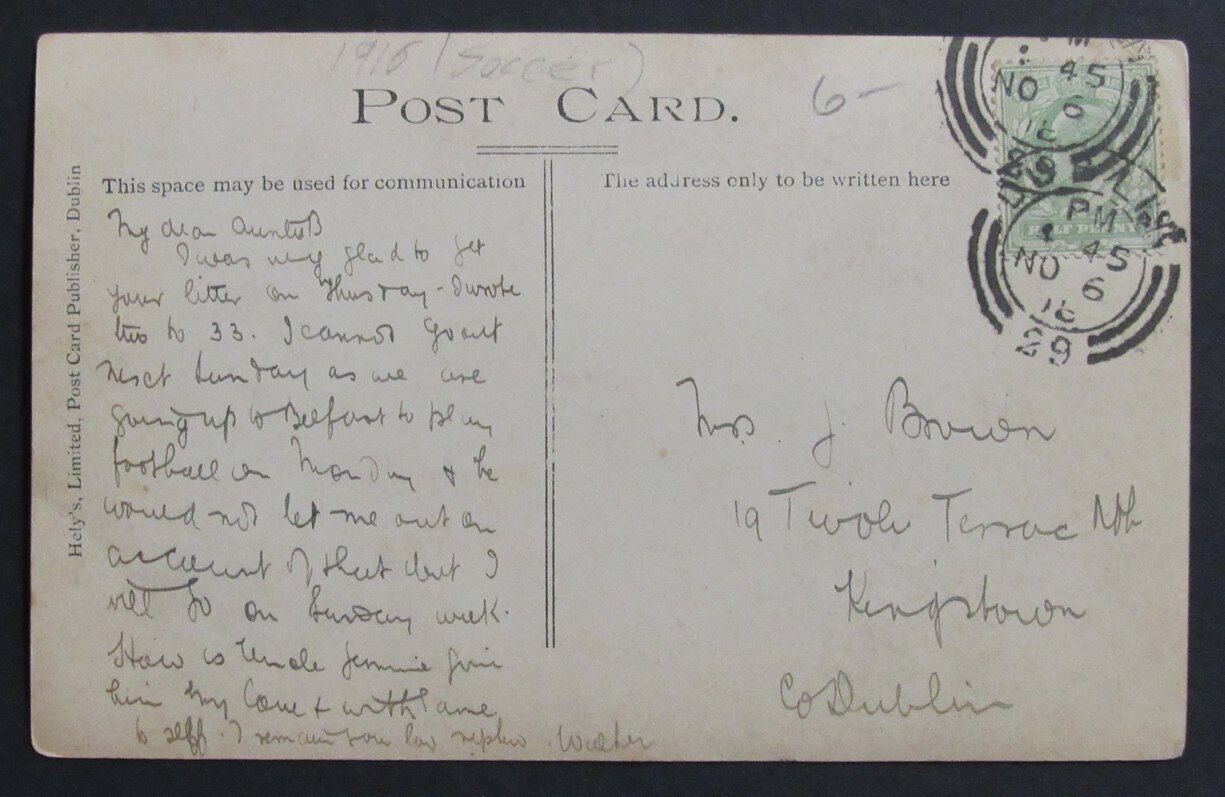 1916 (Soccer)
POST CARD.
6-
This space may be used for communication
The address only to be written here
Hely's, Limited, Post Card Publisher, Dublin
My dear AuntieB
I was very glad to get
your litter on Thursday - I wrote
this to 33. I cannot go out
next Sunday as we are
going up to Belfast to play
football on Monday & he
would not let me out on
account of that but I
will go on Sunday week.
How is Uncle Jimmie give
him my love & with same
to self. I remain your lov nephew. Walter
Mrs. J. Brown
19 Tivoli Terrace Nth
Kingstown
Co Dublin
PM
45
NO 6
16
29
HALF PENNY
PM
45
NO 6
16
29